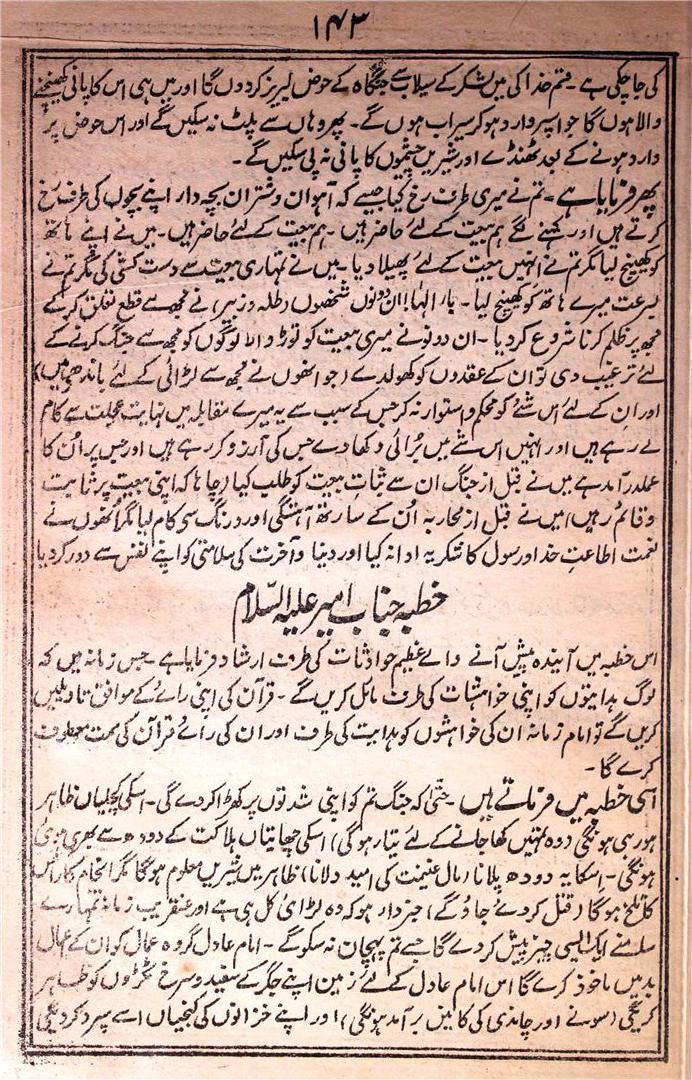 ۱۴۳
کی جا چکی ہے۔ قسم خدا کی میں لشکر کے سیلاب سے جنگاہ کے حوض لبریز کردوں گا اور میں ہی اس کا پانی کھینچنے
والا ہوں گا جو اسپر وارد ہو کر سیراب ہوں گے۔ پھر وہاں سے پلٹ نہ سکیں گے اور اس حوض پر
وارد ہونے کے بعد ٹھنڈے اور شیریں چشموں کا پانی نہ پی سکیں گے۔
پھر فرمایا ہے۔ تم نے میری طرف رخ کیا جیسے کہ آہوان و شتران بچہ دار اپنے بچوں کی طرف رخ
کرتے ہیں اور کہنے لگے ہم بیعت کے لئے حاضر ہیں۔ ہم بیعت کے لئے حاضر ہیں۔ میں نے اپنے ہاتھ
کو کھینچ لیا مگر تم نے انہیں بیعت کے لئے پھیلا دیا۔ میں نے تمہاری بیعت سے دست کشی کی مگر تم نے
بسرعت میرے ہاتھ کو کھینچ لیا۔ بار الٰہا! ان دونوں شخصوں (طلہ وزبیر) نے مجھ سے قطع تعلق کر کے
مجھ پر ظلم کرنا شروع کردیا۔ ان دونو نے میری بیعت کو توڑ دالا لوگوں کو مجھ سے جنگ کرنے کے
لئے ترغیب دی تو ان کے عقدوں کو کھولدے (جو انھوں نے مجھ سے لڑائی کے لئے باندھی ہیں)
اور ان کے لئے اس شے کو محکم و استوار نہ کر جس کے سبب سے یہ میرے مقابلہ میں نہایت عجلت سے کام
لے رہے ہیں اور انہیں اس شے میں برائی دکھا دے جس کی آرزو کر رہے ہیں اور جس پر ان کا
عملدرآمد ہے میں نے قبل از جنگ ان سے ثبات بیعت کو طلب کیا (چاہا کہ اپنی بیعت پر ثابت
و قائم رہیں) میں نے قبل از محاربہ اُن کے ساتھ آہستگی اور درنگ سی کام لیا مگر اُنھوں نے
نعمت اطاعتِ خدا و رسول کا شکریہ ادا نہ کیا اور دنیا و آخرت کی سلامتی کو اپنے نفس سے دور کردیا
خطبہ جناب امیر علیہ السّلام
اس خطبہ میں آیندہ پیش آنے والے عظیم حوادثات کی طرف ارشاد فرمایا ہے۔ جس زمانہ میں کہ
لوگ ہدایتوں کو اپنی خواہشات کی طرف مائل کریں گے۔ قرآن کی اپنی رائے کے موافق تاویلیں
کریں گے تو امام زمانہ ان کی خواہشوں کو ہدایت کی طرف اور ان کی رائے قرآن کی سمت معطوف
کرے گا۔
اسی خطبہ میں فرماتے ہیں۔ حتّٰی کہ جنگ تم کو اپنی شدتوں پر کھڑا کردے گی۔ اسکی کچلیاں ظاہر
ہو رہی ہونگی (وہ تمہیں کھا جانے کے لئے تیار ہوگی) اسکی چھاتیاں ہلاکت کے دودھ سے بھری ہوئی
ہونگی۔ اسکا یہ دودھ پلانا (مال غنیمت کی امید دلانا) ظاہر میں شیریں معلوم ہوگا مگر انجام کار اُس
کا تلخ ہوگا (قتل کردئے جاؤگے) خبردار ہو کہ وہ لڑائی کل ہی ہے اور عنقریب زمانہ تمہارے
سامنے ایک ایسی چیز پیش کردے گا جسے تم پہچان نہ سکوگے۔ امام عادل گروہ عمال کو ان کے اعمال
بد میں ماخوذ کرے گا اس امام عادل کے لئے زمین اپنے جگر کے سفید و سرخ ٹکڑوں کو ظاہر
کریگی (سونے اور چاندی کی کانیں برآمد ہونگی) اور اپنے خزانوں کی کنجیاں اسے سپرد کردیگی